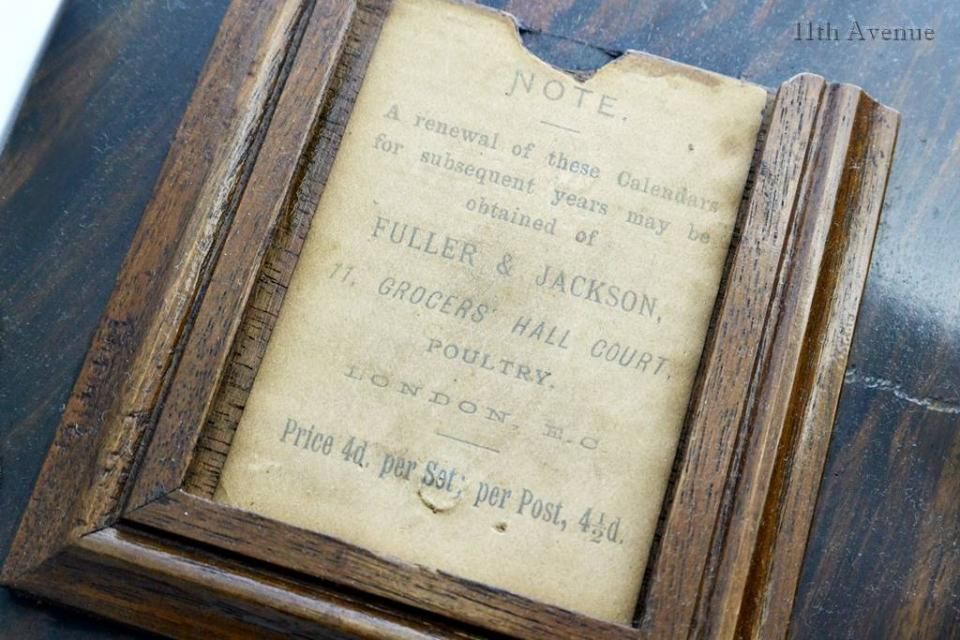 11th Avenue
NOTE.
A renewal of these Calendars
for subsequent years may be
obtained of
FULLER & JACKSON,
11, GROCERS' HALL COURT,
POULTRY.
LONDON, E.C
Price 4d. per Set; per Post, 4½d.